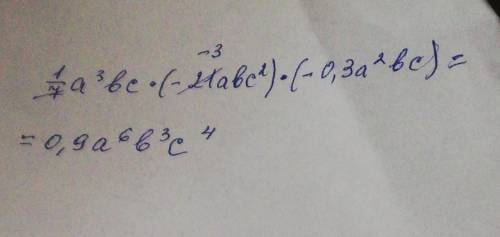 -3
1/7 a³bc · (-21abc²) · (-0,3a²bc) =
= 0,9a⁶b³c⁴